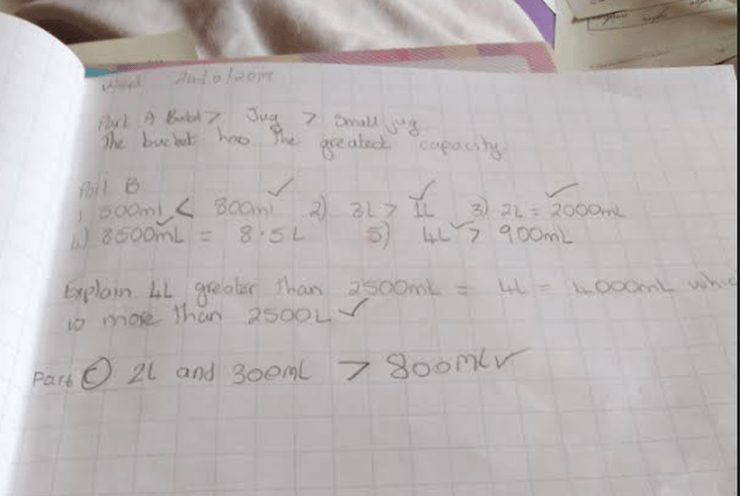 Part A Bucket > Jug > Small jug
The bucket has the greatest capacity
Part B
1) 500ml < 800ml 2) 3L > 1L 3) 2L = 2000mL
4) 8500mL = 8.5L 5) 4L > 900mL
Explain 4L greater than 2500mL = 4L = 4000mL which
is more than 2500L
Part C 2L and 300mL > 800mL